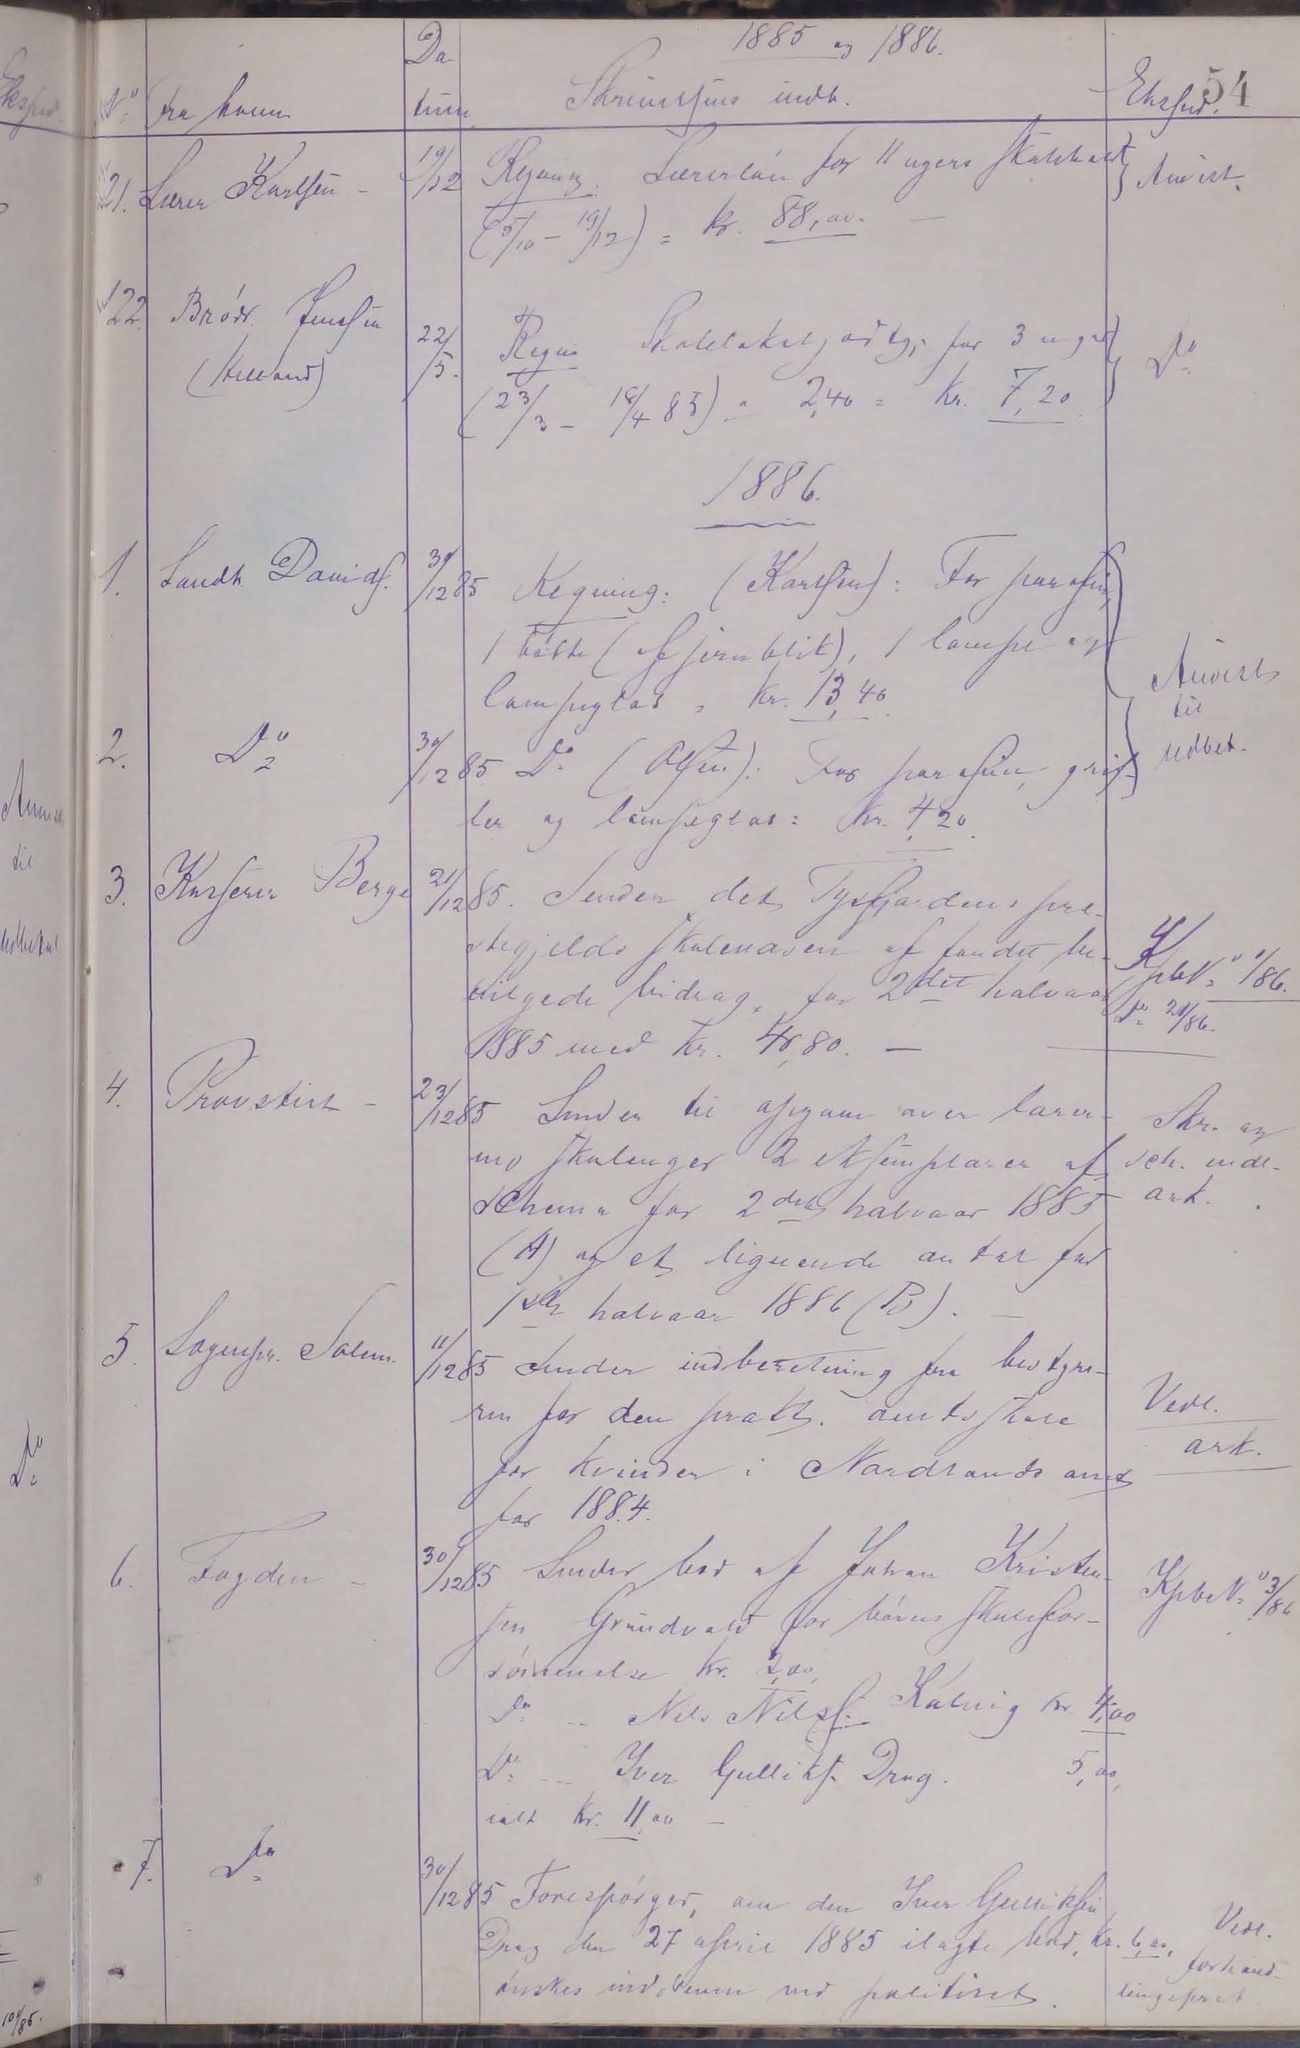 1885 og 1886.
54
No fra hvem Datum Skrivelsens indh. Eksped.
21. Lærer Karlsen - 19/12 Regning. Lærerløn for 11 ugers skolehold Anvist.
(5/10 - 19/12) = kr. 88,00. -
122. Brødr. Jenssen 22/5. Regn. for 3 uger Do
(Helland)
(23/3 - 18/4 85) 2,40 = Kr. 7,20
1886.
1. Landh. Davids. 30/12 85 Regning: (Karlsen): For parafin,
1 bøtte (af jernblik), 1 lampe og
lampeglas = Kr. 13,40.
Anvist
til
udbet.
2. Do 30/12 85 Do (Olsen): For parafin, grif-
ler og lampeglas = Kr. 4,20.
3. Kasserer Berge 21/12 85. Sender det Tysfjordens præ-
stegjelds skolevæsen af fondet be-
vilgede bidrag, for 2det halvaar
1885 med Kr. 48,80. -
Kpb No 1/86.
Do 21/86.
4. Provstiet - 23/12 85 Sender til afgaven over lærer-
ens skoleuger 2 eksemplarer af
schema for 2det halvaar 1885
(A) og et lignende antal for
1ste halvaar 1886 (B). -
Skr. og
sch. indl.
ark.
5. Sogenpr. Solem. 11/12 85 Sender indberetning fra bestyre-
ren for den prakt. amtsskole
for kvinder i Nordlands amt
for 1884.
Vedl.
ark.
6. Fogden - 30/12 85 Sender bod af Johan Kristen-
sen Grundvald for børns skolefor-
sømmelse Kr. 2,00,
Do - Nils Nilss. Kalvig Kr 4,00
Do - Iver Gulliks. Drag. 5,00,
ialt Kr. 11,00 -
Kpb No 3/86
7. Do 30/12 85 Forespørger, om den Iver Gulliksen
Drag den 27 april 1885 ilagte bod, Kr. 6,00,
ønskes inddreven ved politiet.
Vedl.
forhand-
lingsprot.
Do
10/86.